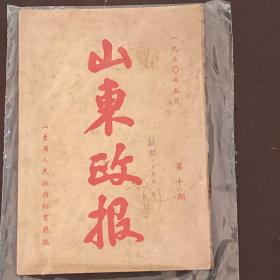 一九五〇年五月
山東政报
第十期
山东省人民政府秘書廳編